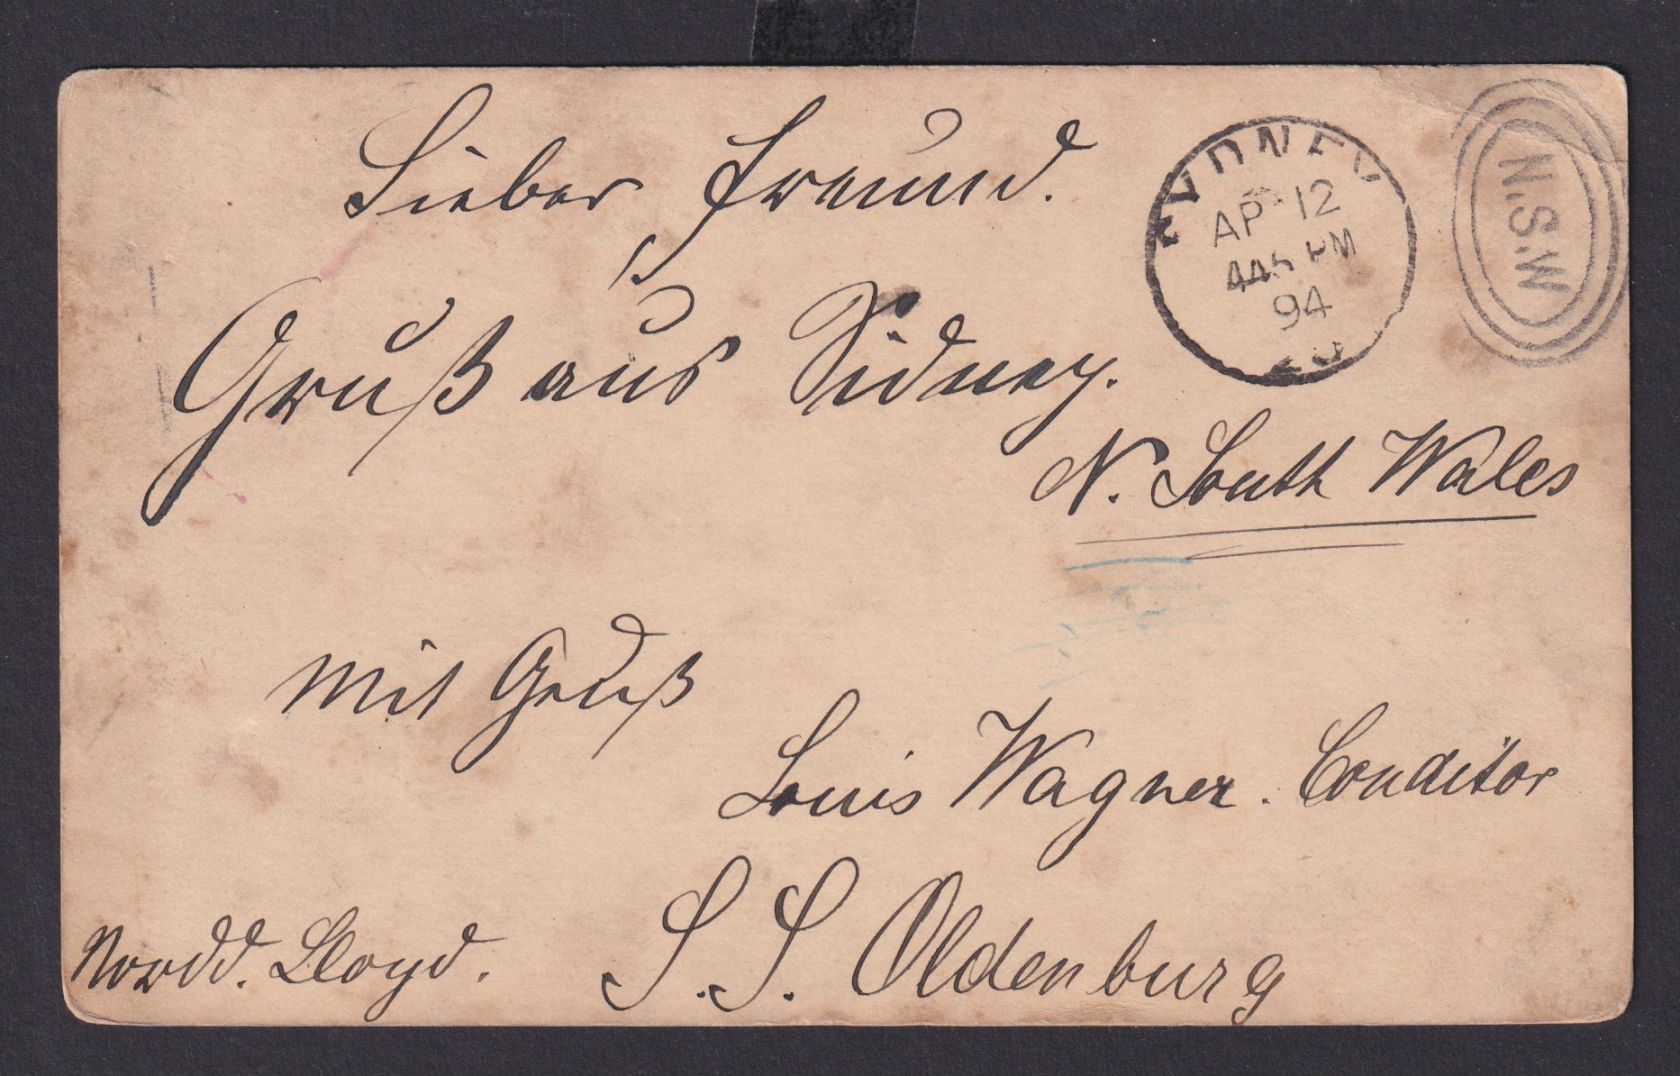 Lieber Freund.
Gruß aus Sidney.
N. South Wales
Mit Gruß
Louis Wagner. Conditor
Nordd. Lloyd. S. S. Oldenburg
SYDNEY
AP 12
445 PM
94
N.S.W